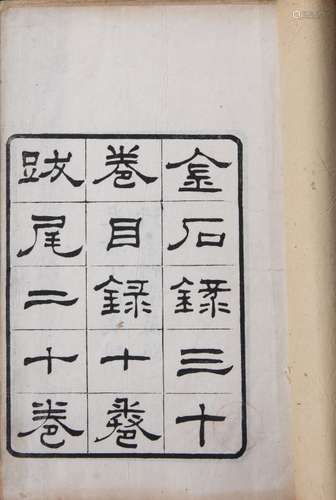 金石録三十
卷目録十卷
跋尾二十卷